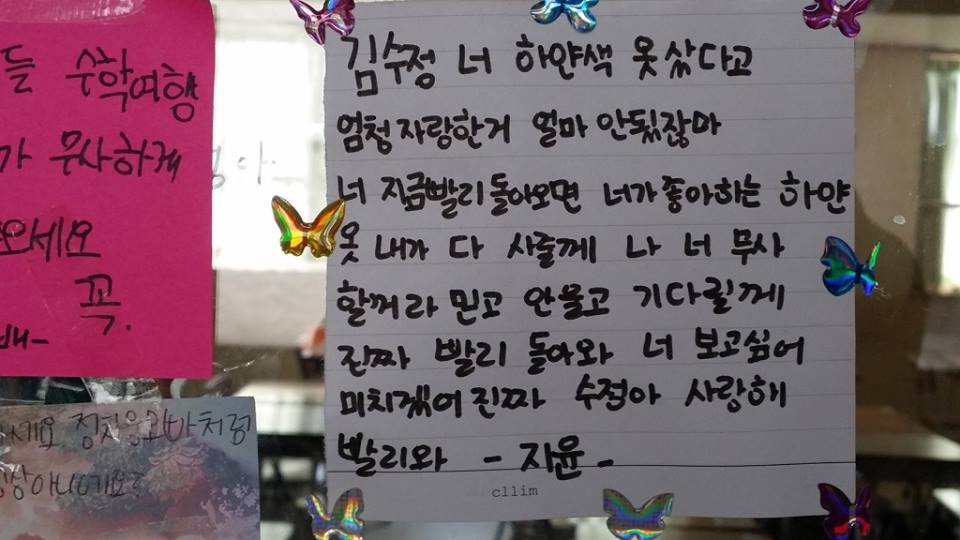 들 수학여행
가 무사하게
오세요
꼭.
김수정 너 하얀색 옷샀다고
엄청자랑한거 얼마 안됬잖아
너 지금빨리 돌아오면 너가좋아하는 하얀
옷 내가 다 사줄께 나 너 무사
할꺼라 믿고 안울고 기다릴께
진짜 빨리 돌아와 너 보고싶어
미치겠어진짜 수정아 사랑해
빨리와 - 지윤 -
cllim